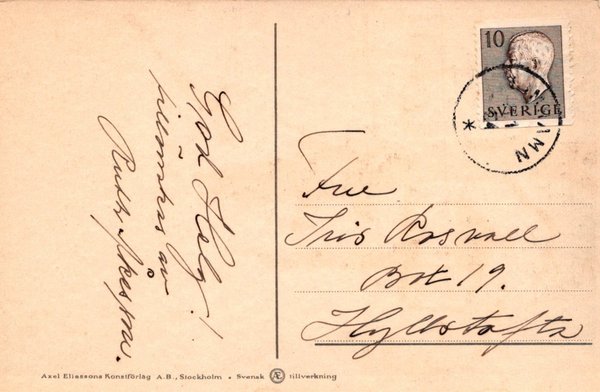 God Helg!
tillönskas av
Ruth Åkesson.
10
SVERIGE
Fru
Iris Rosvall
Box 19.
Hyllstofta
Axel Eliassons Konstförlag A.B., Stockholm • Svensk Æ tillverkning